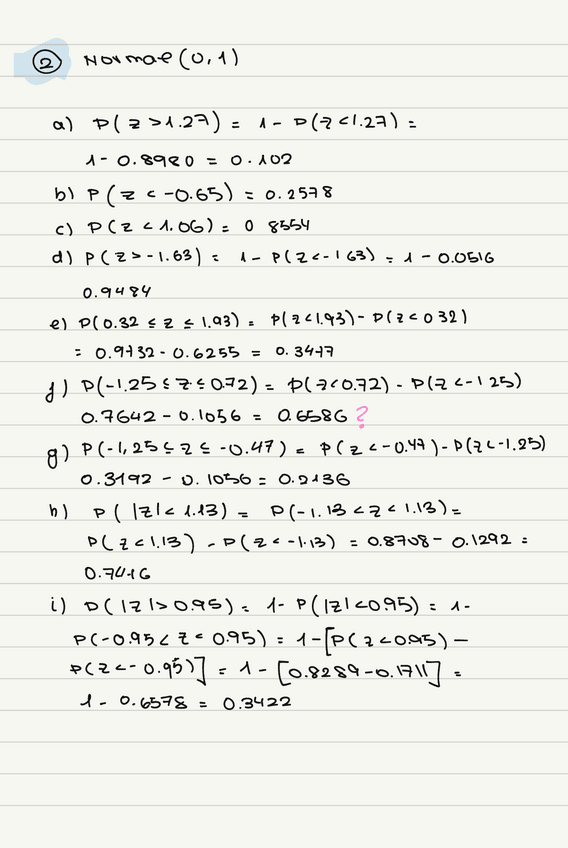 2 Normal (0,1)
a) P( z > 1.27) = 1 - P(z < 1.27) =
1 - 0.8980 = 0.102
b) P( z < -0.65) = 0.2578
c) P(z < 1.06) = 0 8554
d) P(z > -1.63) = 1 - P(z < -1 63) = 1 - 0.0516
0.9484
e) P(0.32 ≤ z ≤ 1.93) = P(z < 1.93) - P(z < 0 32)
= 0.9732 - 0.6255 = 0.3477
f) P(-1.25 ≤ z ≤ 0.72) = P(z < 0.72) - P(z < -1 25)
0.7642 - 0.1056 = 0.6586 ?
g) P(-1,25 ≤ z ≤ -0.47) = P(z < -0.47) - P(z < -1.25)
0.3192 - 0.1056 = 0.2136
h) P( |z| < 1.13) = P(-1.13 < z < 1.13) =
P(z < 1.13) - P(z < -1.13) = 0.8708 - 0.1292 =
0.7416
i) P(|z| > 0.95) = 1 - P(|z| < 0.95) = 1 -
P(-0.95 < z < 0.95) = 1 - [P(z < 0.95) -
P(z < -0.95)] = 1 - [0.8289 - 0.1711] =
1 - 0.6578 = 0.3422